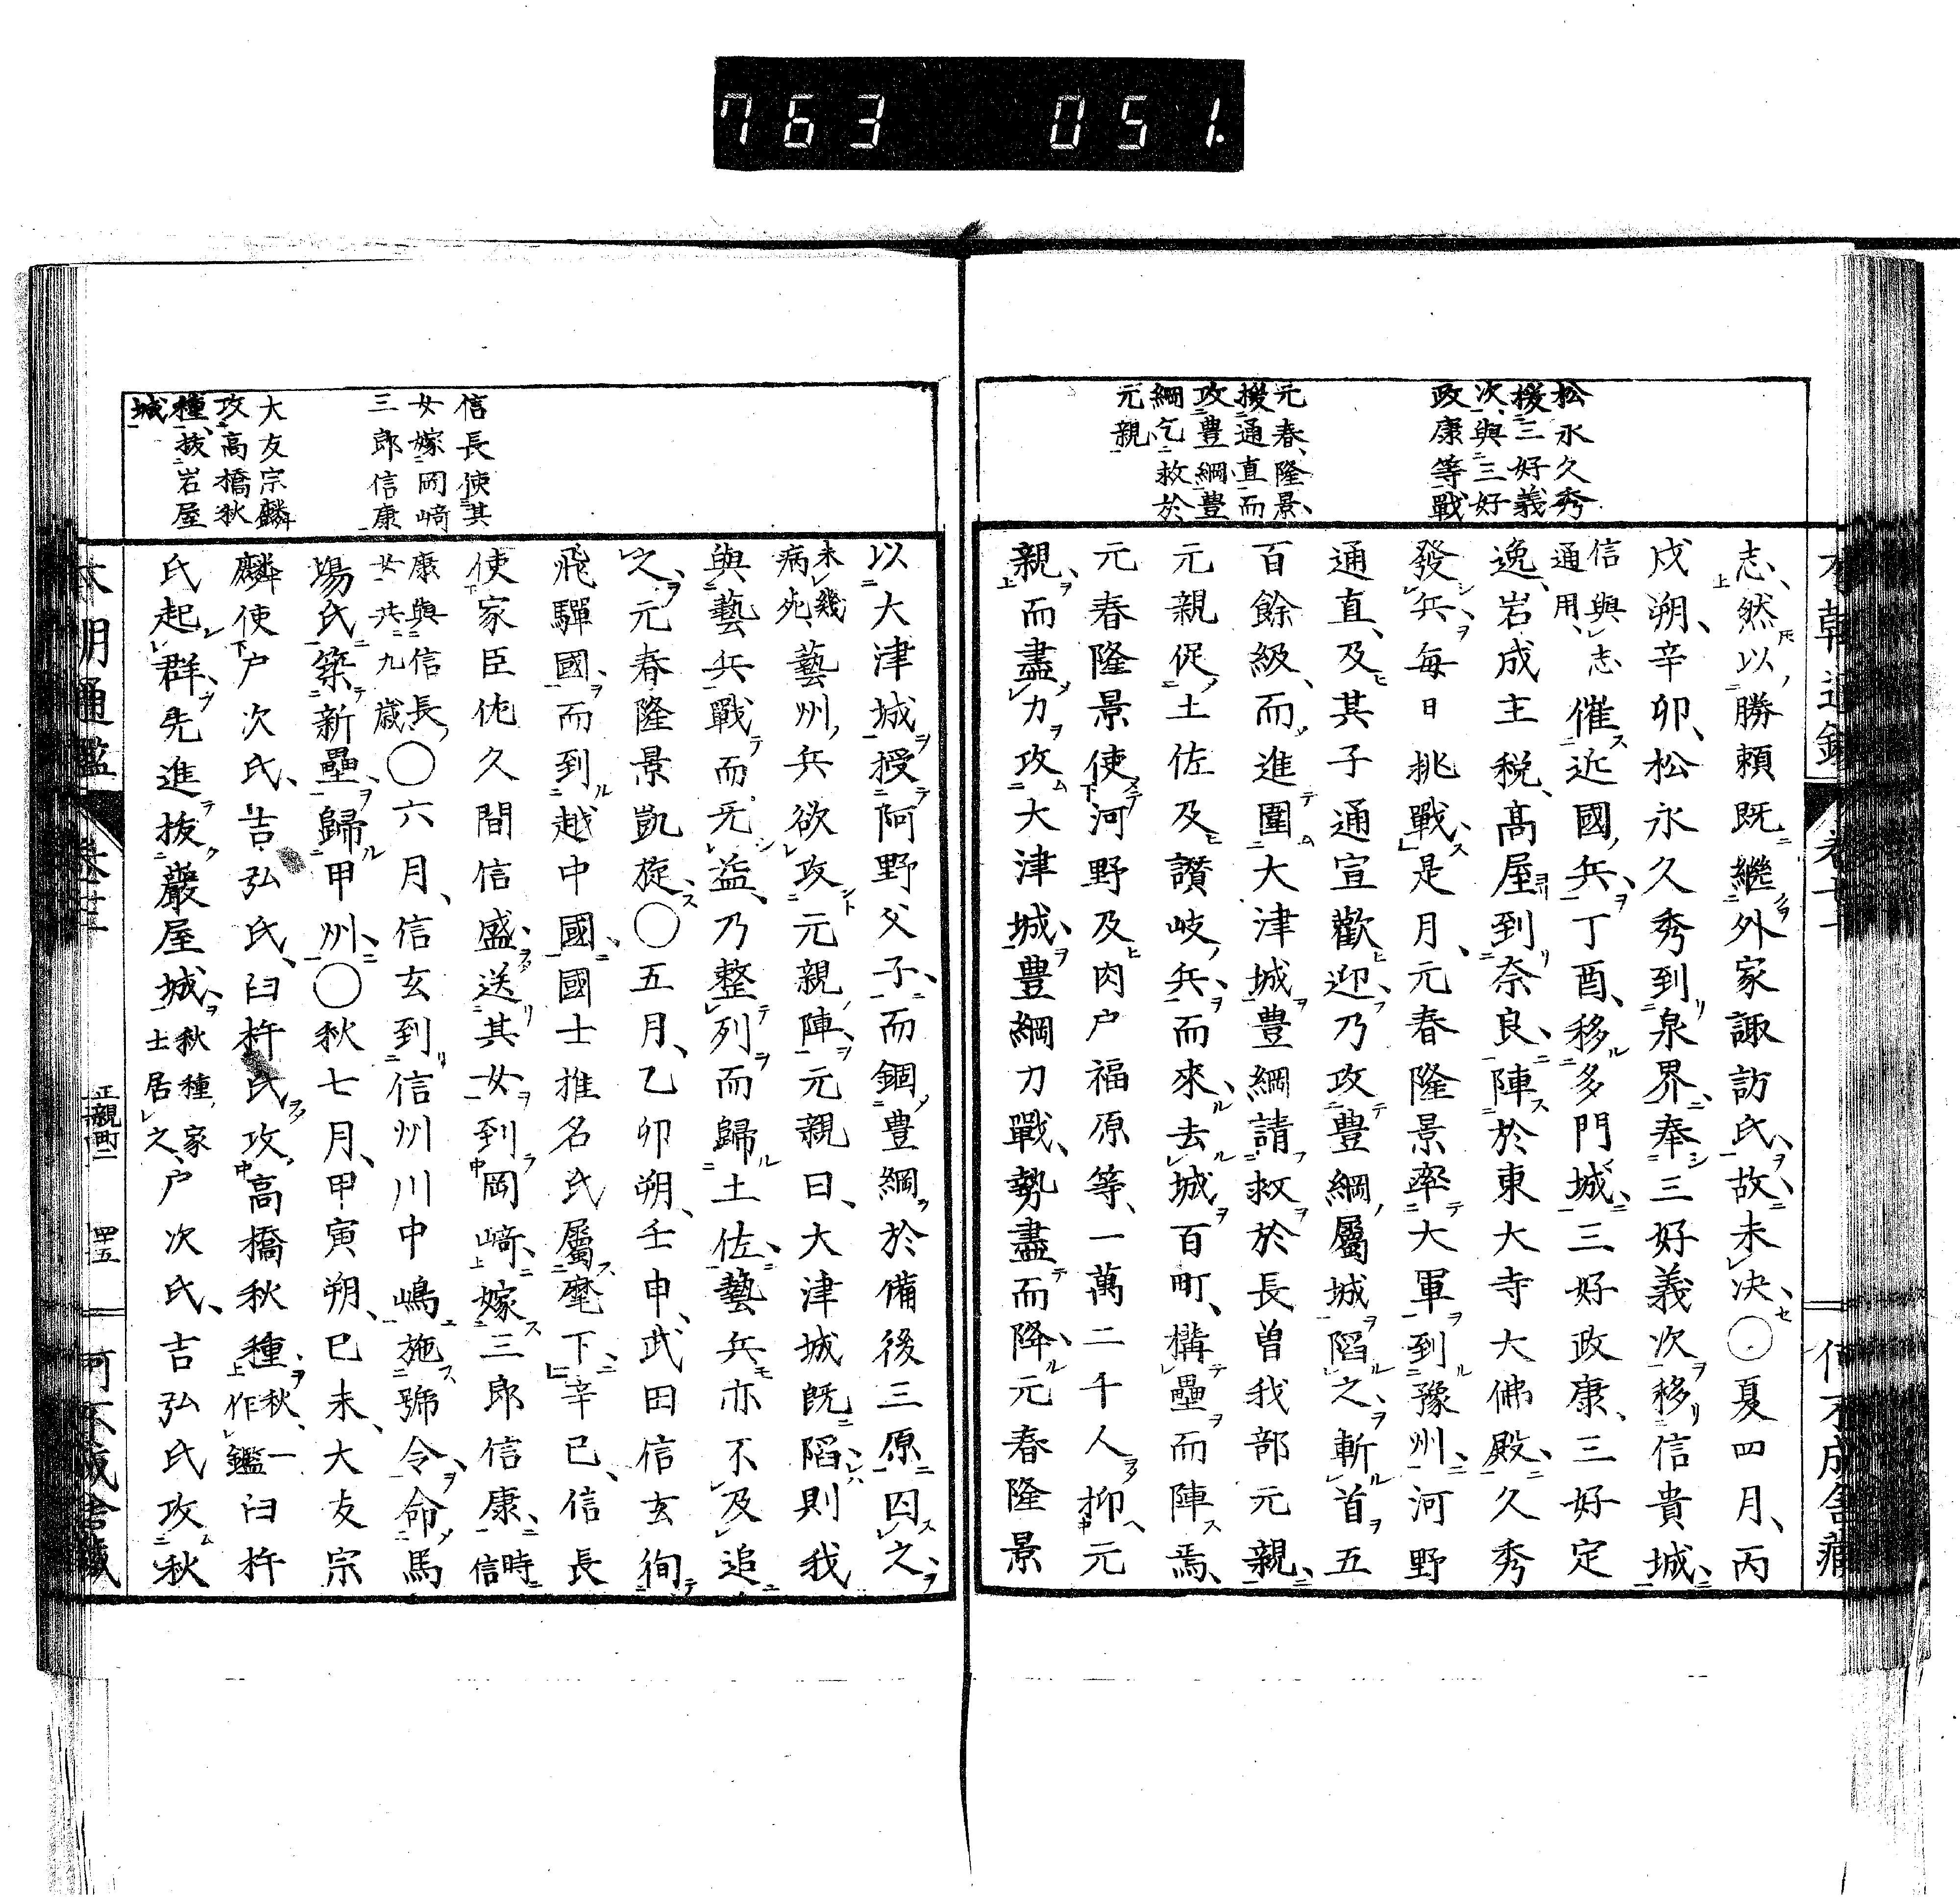 763 051.
松永久秀
援三好義
次與三好
政康等戰
元春、隆景、
援通直而
攻豊綱豊
綱乞救於
元親
志、然以勝頼既繼外家諏訪氏、故未決、〇夏四月、丙
戌朔、辛卯、松永久秀到泉界、奉三好義次移信貴城、
信與志通用、催近國兵、丁酉、移多門城、三好政康、三好定
逸、岩成主税、高屋到奈良、陣於東大寺大佛殿、久秀
發兵、每日挑戰、是月、元春隆景率大軍到豫州、河野
通直、及其子通宣歡迎、乃攻豊綱屬城陷之、斬首五
百餘級、而進圍大津城豊綱請救於長曽我部元親、
元親促土佐及讃岐兵、而來、去城百町、構壘而陣焉、
元春隆景使河野及肉戸福原等、一萬二千人抑元
親、而盡力攻大津城、豊綱力戰、勢盡而降、元春隆景
信長使其
女嫁岡﨑
三郎信康
大友宗麟
攻高橋秋
種、拔岩屋
城
以大津城授阿野父子、而錮豊綱於備後三原囚之、
未幾病死、藝州兵欲攻元親陣、元親曰、大津城既陷、則我
與藝兵戰而无益、乃整列而歸土佐、藝兵亦不及追
之、元春隆景凱旋、〇五月、乙卯朔、壬申、武田信玄徇
飛驒國、而到越中國、國士推名氏屬麾下、辛巳、信長
使家臣佐久間信盛、送其女到岡﨑、嫁三郎信康、時信
康與信長女共九歳〇六月、信玄到信州川中嶋施號令、命馬
場氏築新壘、歸甲州、〇秋七月、甲寅朔、巳未、大友宗
麟使戸次氏、吉弘氏、臼杵氏攻高橋秋種、秋一作鑑臼杵
氏起群、先進拔巖屋城、秋種家士居之、戸次氏、吉弘氏攻秋
正親町二 四十五